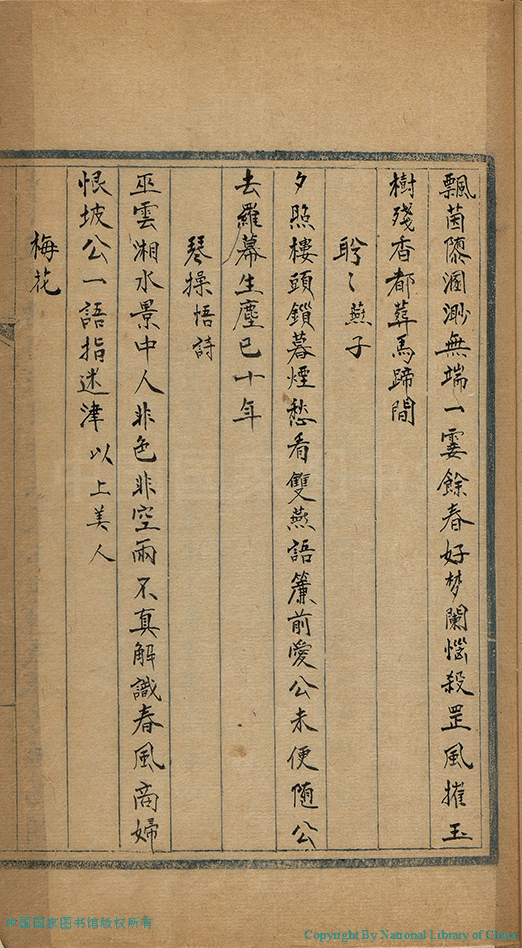 飄茵隳溷渺無端一霎餘春好梦闌惱殺罡風摧玉
樹殘香都葬馬蹄間
盻〻燕子
夕照樓頭鎖暮煙愁看雙燕語簾前愛公未便随公
去羅幕生塵已十年
琴操悟詩
巫雲湘水景中人非色非空兩不真解識春風商婦
恨坡公一語指迷津 以上美人
梅花
中国国家图书馆版权所有
Copyright By National Library of China